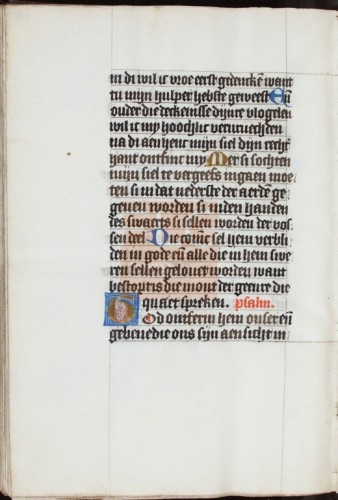 in di wil ic vroe eerst gedencken want
tu mijn hulper hebste geweest En
onder die deckenisse dijnre vlogelen
wil ic my hoochlic vervruechden
na di aenhenc mijn siel dijn recht
hant ontfinc my Mer si sochten
mijn siel te vergeefs ingaen moe
ten si in dat nederste der aerden ge
geven worden si in den handen
des swaerts si sellen worden der vos
sen deel Die coninc sel hem verbli
den in gode en alle die in hem swe
ren sellen gelovet worden want
bestoptis die mont der geenre die
quaet spreken. psalm.
God ontferm hem onser en
gebenedie ons sijn aensicht in